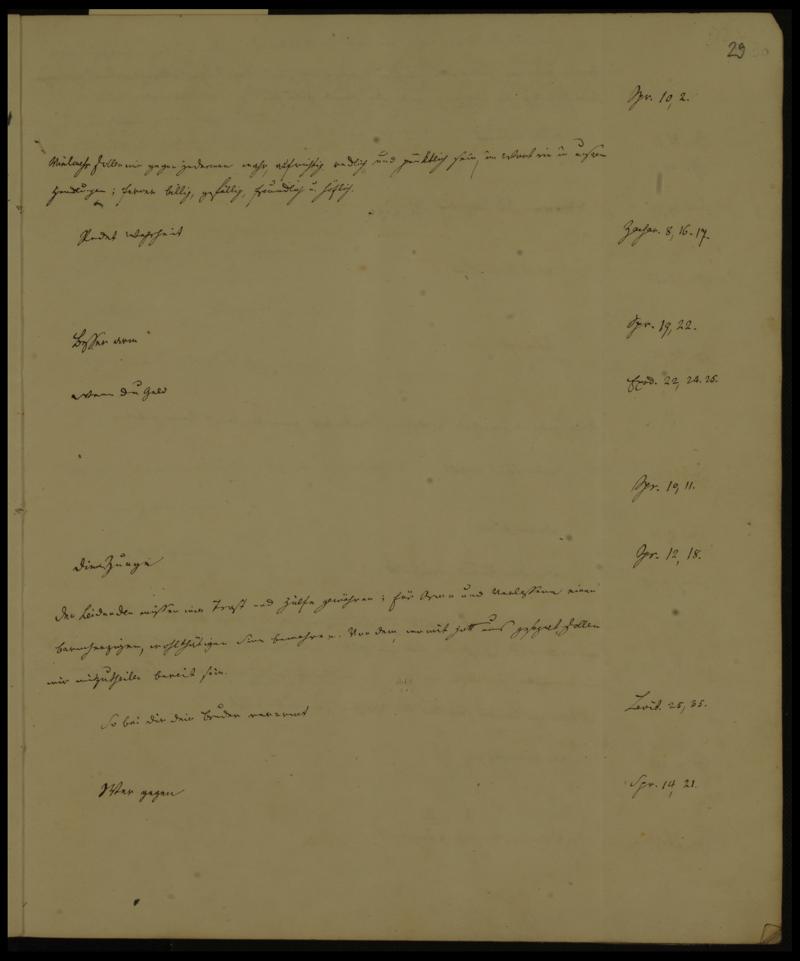 29
Spr. 10, 2.
Vielmehr sollen wir gegen jederman wahr, aufrichtig redlich und pünktlich sein, im Wort wie in unsern
Handlungen; ferner billig, gefällig, freundlich u. höflich.
Redet Wahrheit
Zachar. 8, 16-17.
Spr. 19, 22.
Besser arm
Exod. 22, 24. 25.
Wenn du Geld
Spr. 19, 11.
Spr. 12, 18.
Die Zunge
Den Leidenden müssen wir Trost und Hülfe gewähren; für Arme und Verlassene einen
barmherzigen, wohlthätigen Sinn bewahren. Von dem, womit Gott uns gesegnet, sollen
wir mitzutheilen bereit sein.
Levit. 25, 35.
So bei dir dein Bruder verarmt
Spr. 14, 21.
Wer gegen